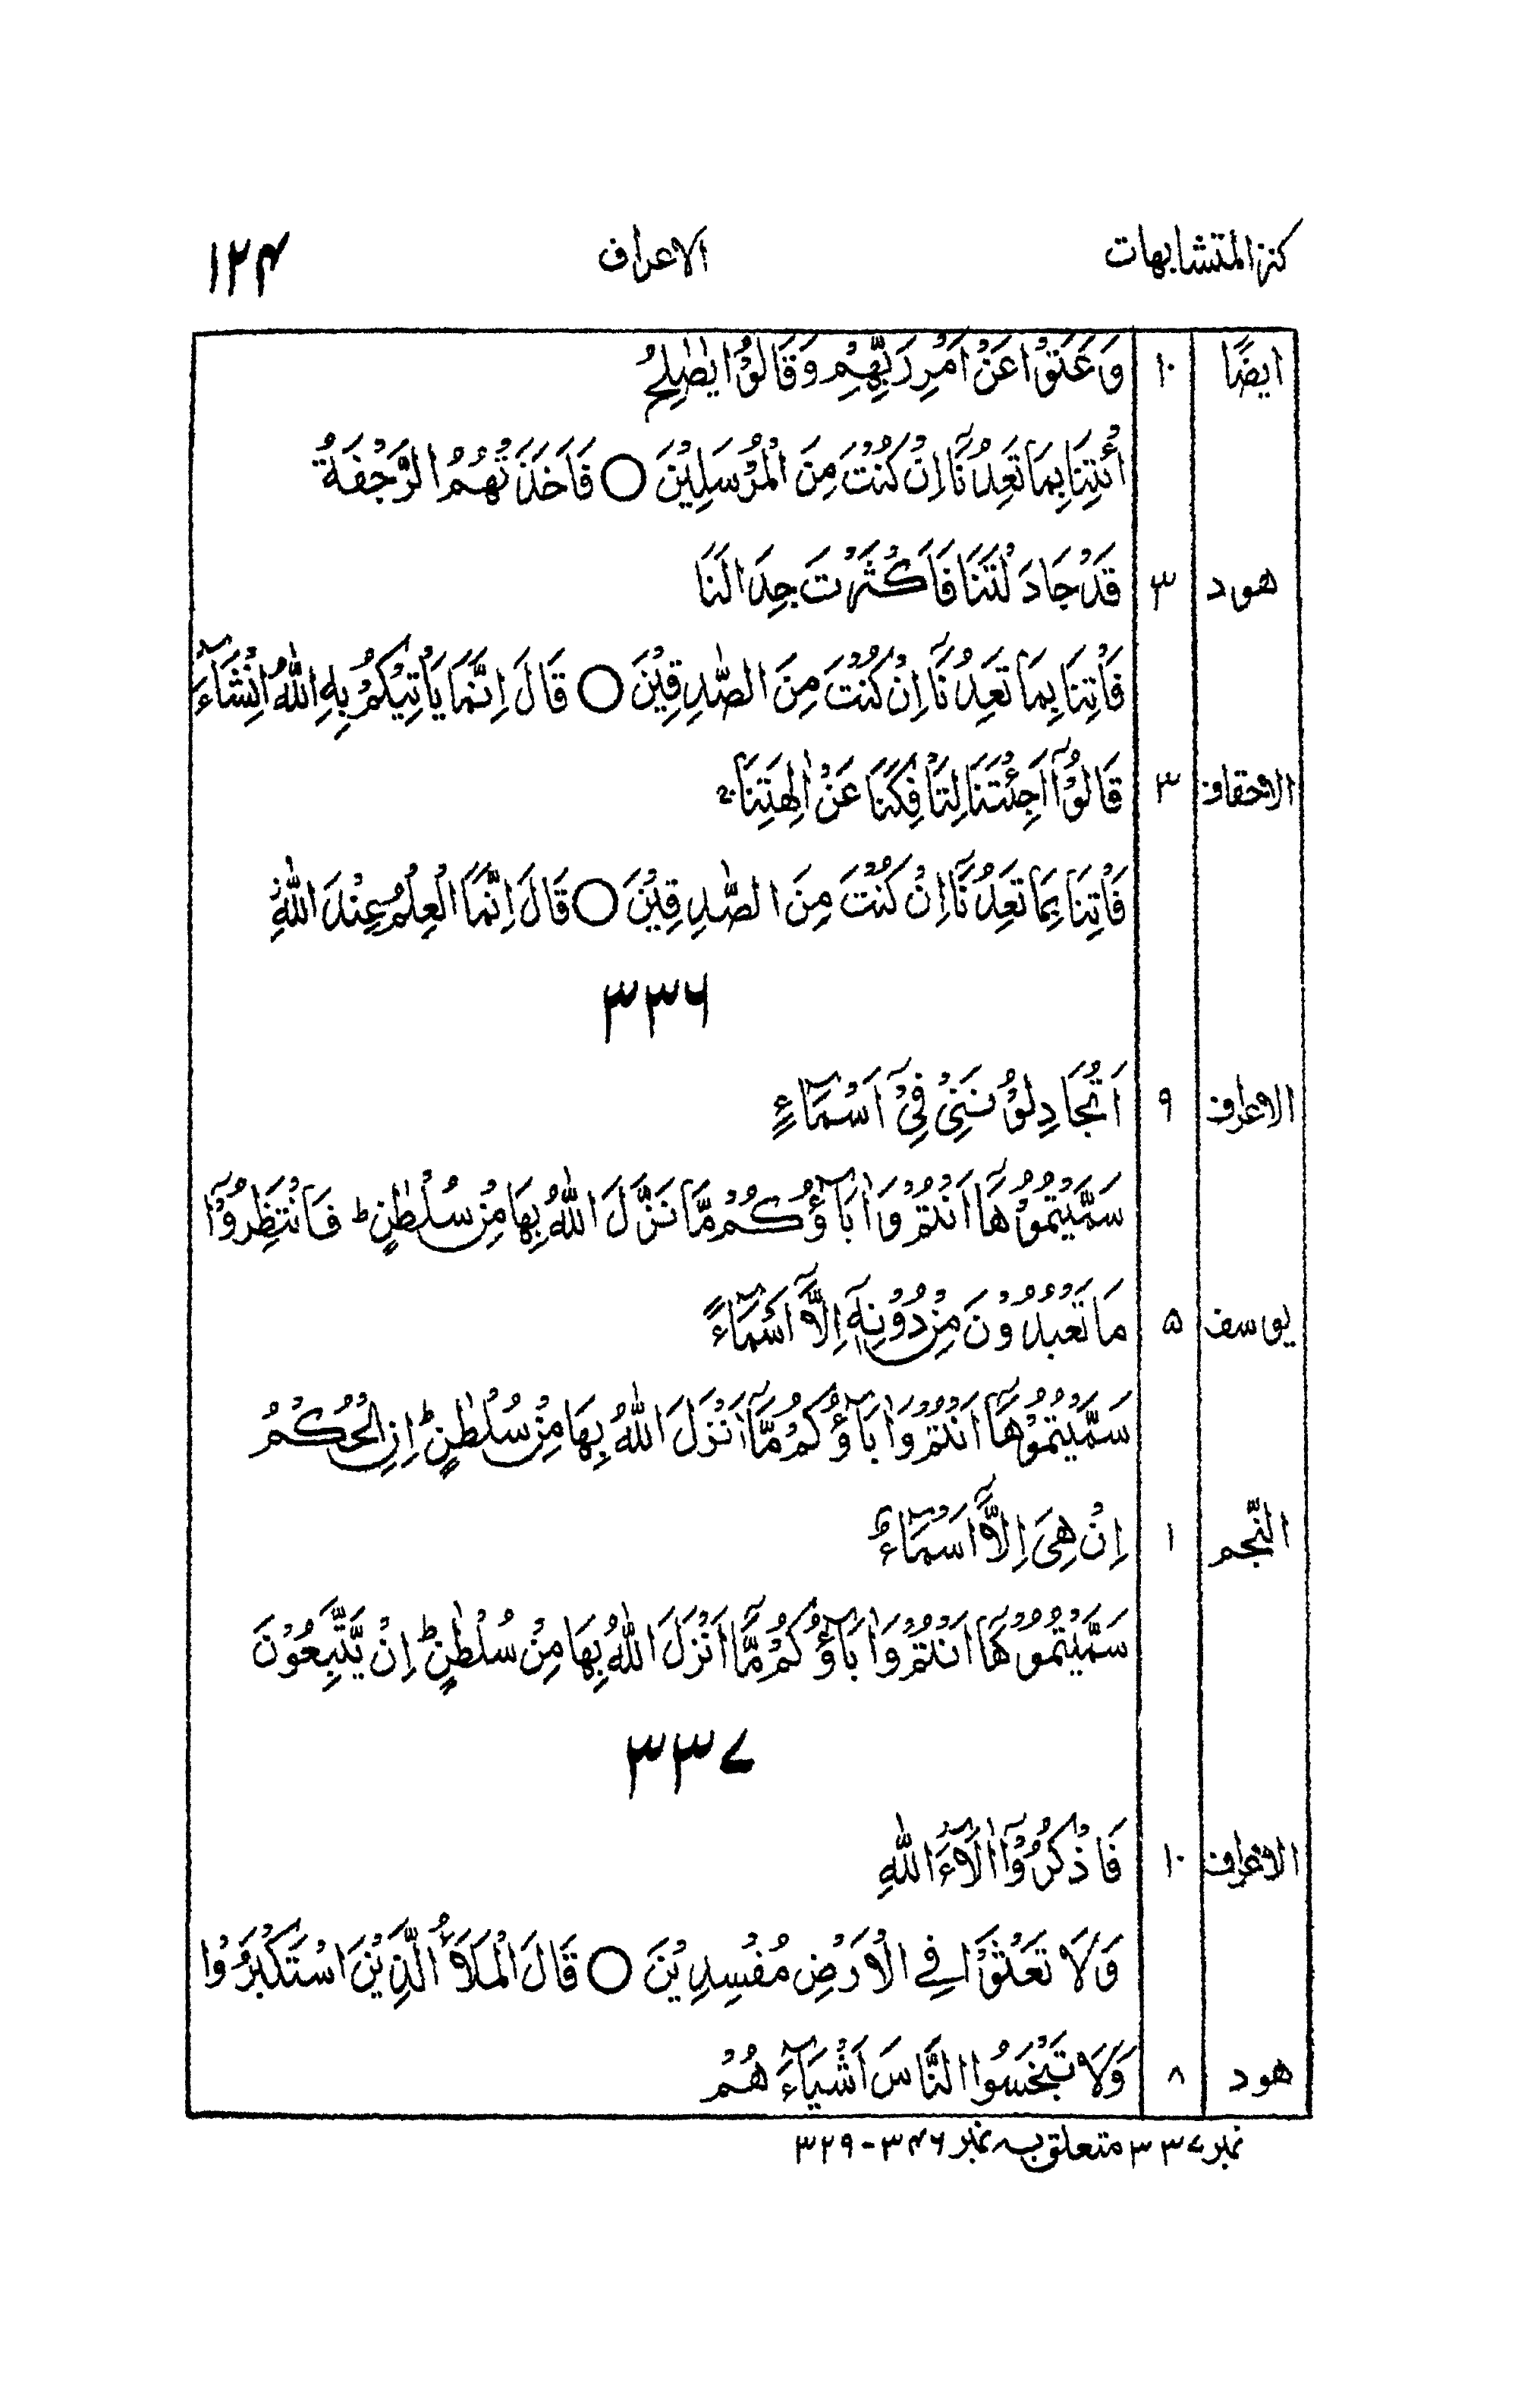 كنز المتشابهات الاعراف ۱۲۴
ايضًا ۱۰ وَعَتَوْا عَنْ اَمْرِ رَبِّهِمْ وَقَالُوْا يٰصٰلِحُ
ائْتِنَا بِمَا تَعِدُنَآ اِنْ كُنْتَ مِنَ الْمُرْسَلِيْنَ ○ فَاَخَذَتْهُمُ الرَّجْفَةُ
هود ۳ قَدْ جَادَلْتَنَا فَاَكْثَرْتَ جِدَالَنَا
فَاْتِنَا بِمَا تَعِدُنَآ اِنْ كُنْتَ مِنَ الصّٰدِقِيْنَ ○ قَالَ اِنَّمَا يَاْتِيْكُمْ بِهِ اللّٰهُ اِنْ شَآءَ
الاحقاف ۳ قَالُوْٓا اَجِئْتَنَا لِتَاْفِكَنَا عَنْ اٰلِهَتِنَا ۚ
فَاْتِنَا بِمَا تَعِدُنَآ اِنْ كُنْتَ مِنَ الصّٰدِقِيْنَ ○ قَالَ اِنَّمَا الْعِلْمُ عِنْدَ اللّٰهِ
۳۳۶
الاعراف ۹ اَتُجَادِلُوْنَنِيْ فِيْٓ اَسْمَآءٍ
سَمَّيْتُمُوْهَآ اَنْتُمْ وَاٰبَآؤُكُمْ مَّا نَزَّلَ اللّٰهُ بِهَا مِنْ سُلْطٰنٍ ؕ فَانْتَظِرُوْٓا
يوسف ۵ مَا تَعْبُدُوْنَ مِنْ دُوْنِهٖٓ اِلَّآ اَسْمَآءً
سَمَّيْتُمُوْهَآ اَنْتُمْ وَاٰبَآؤُكُمْ مَّآ اَنْزَلَ اللّٰهُ بِهَا مِنْ سُلْطٰنٍ ؕ اِنِ الْحُكْمُ
النّجم ۱ اِنْ هِيَ اِلَّآ اَسْمَآءٌ
سَمَّيْتُمُوْهَآ اَنْتُمْ وَاٰبَآؤُكُمْ مَّآ اَنْزَلَ اللّٰهُ بِهَا مِنْ سُلْطٰنٍ ؕ اِنْ يَّتَّبِعُوْنَ
۳۳۷
الاعراف ۱۰ فَاذْكُرُوْٓا اٰلَآءَ اللّٰهِ
وَلَا تَعْثَوْا فِي الْاَرْضِ مُفْسِدِيْنَ ○ قَالَ الْمَلَاُ الَّذِيْنَ اسْتَكْبَرُوْا
هود ۸ وَلَا تَبْخَسُوا النَّاسَ اَشْيَآءَهُمْ
نمبر ۳۳۷ متعلق بہ نمبر ۳۴۶-۳۲۹